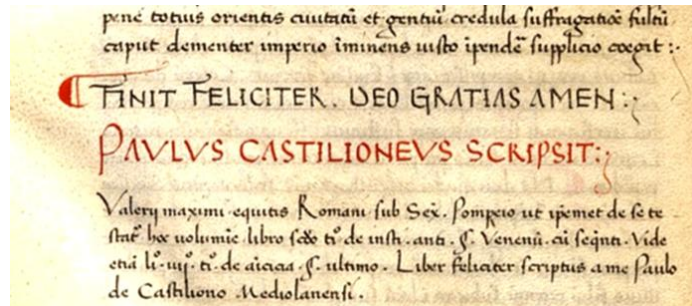 pene totius orientis ciuitatū et gentiū credula suffragatiōe fultū
caput dementer imperio īminens iusto īpendē supplicio coegit :·
FINIT FELICITER. DEO GRATIAS AMEN :
PAVLVS CASTILIONEVS SCRIPSIT :
Valerij maximi equitis Romani sub Sex. Pompeio ut ipemet de se te
stat᷑ hoc uolumīe libro scďo ti.º de insti. anti. §. Venenū. cū seqnti. Vide
etiā li.º uij. ti.º de aīcicia. §. ultimo. Liber feliciter scriptus a me Paulo
de Castiliono Mediolanensi.